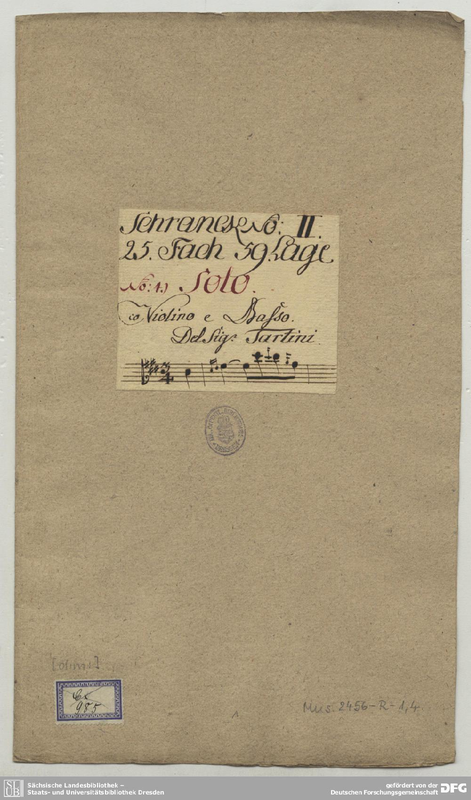 Schranck No: II.
25. Fach 59. Lage
No: 1.) Solo.
co Violino e Basso.
Del Sigr. Tartini
[olim:]
Cx
985
Mus. 2456-R-1,4
Sächsische Landesbibliothek –
Staats- und Universitätsbibliothek Dresden
gefördert von der
Deutschen Forschungsgemeinschaft
DFG